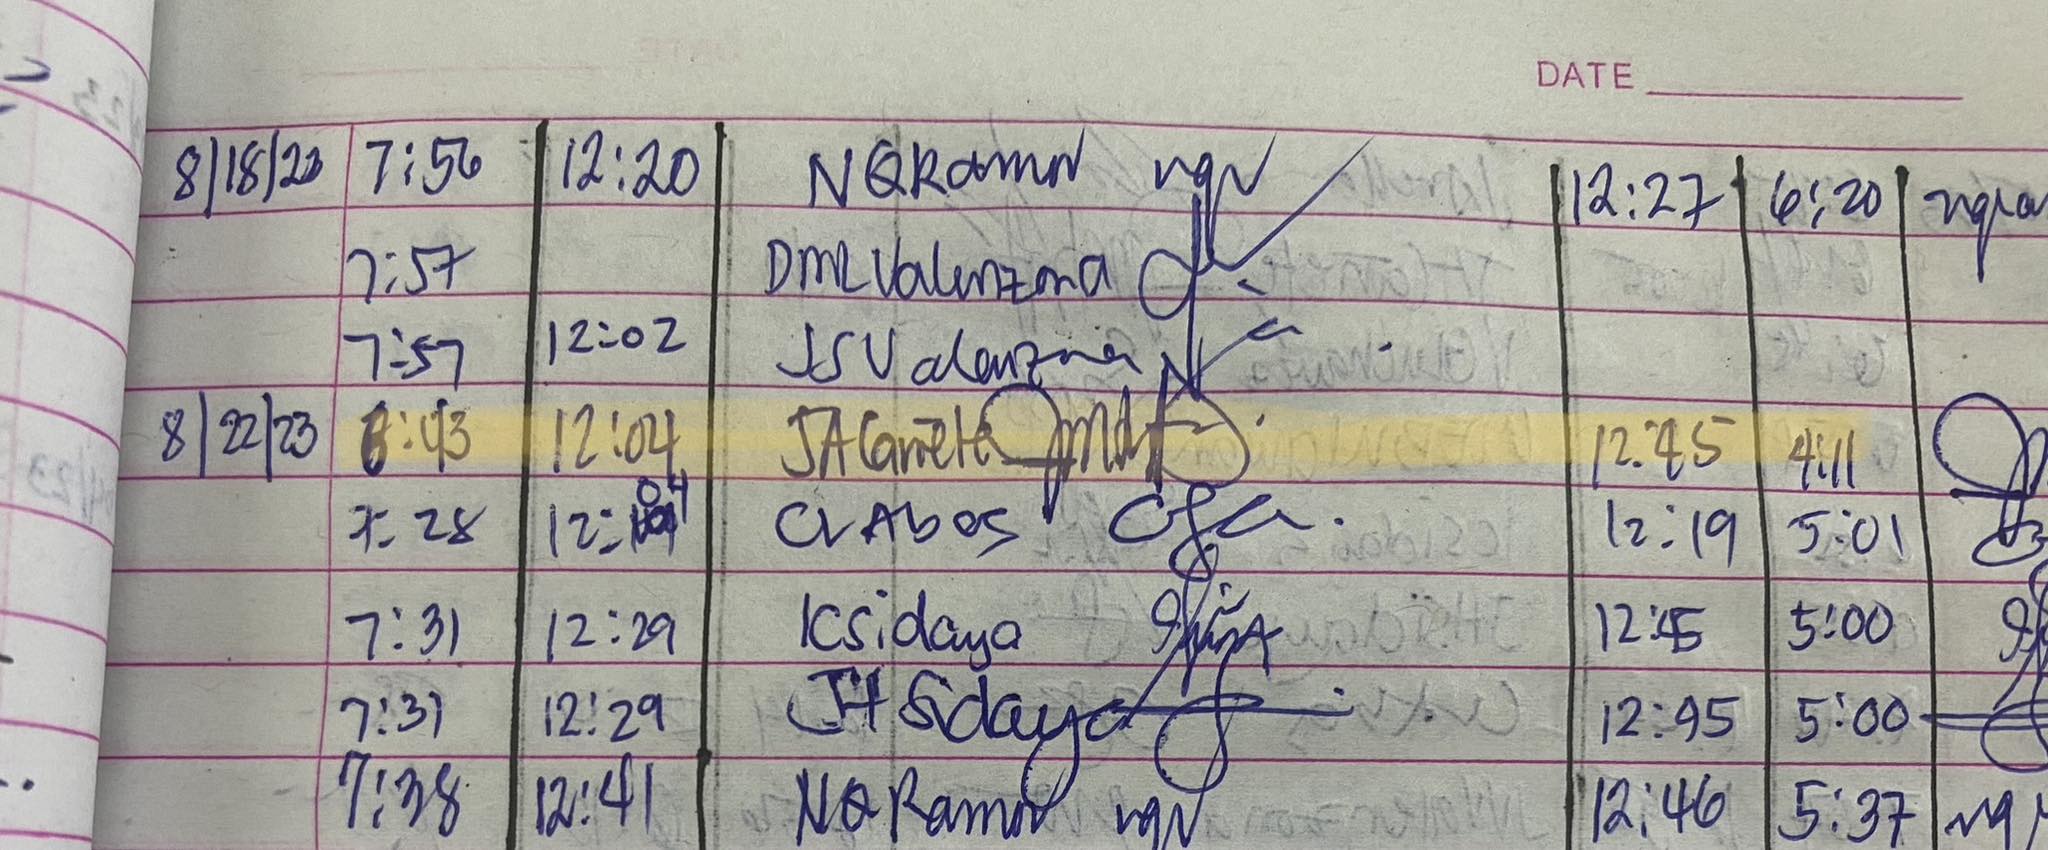 DATE
8/18/23 7:56 12:20 NQRamon ngr 12:27 6:20
7:57 DMLValenzona
7:57 12:02 JSValenzona
8/22/23 6:43 12:04 JACañete 12:45 4:11
7:28 12:04 CLAbos 12:19 5:01
7:31 12:29 KSidaya 12:45 5:00
7:31 12:29 JHSidaya 12:45 5:00
7:38 12:41 NQRamon ngr 12:46 5:37